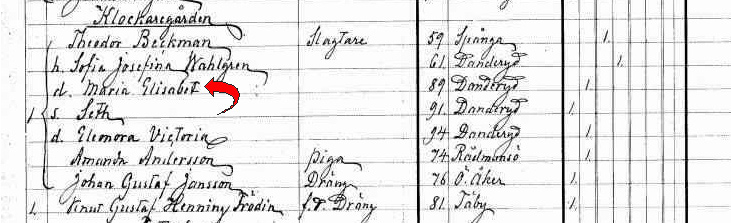 Klockaregården
Theodor Beckman Slagtare 59 Spånga 1.
h. Sofia Josefina Wahlgren 61 Danderyd 1
d. Maria Elisabet 89 Danderyd 1
1 s. Seth 91 Danderyd 1.
d. Eleonora Victoria 94 Danderyd 1
Amanda Andersson piga 74 Rådmansö 1
Johan Gustaf Jansson Dräng 76 Ö. Åker 1.
1. Knut Gustaf Henning Frödin f.d. Dräng 81 Täby 1.